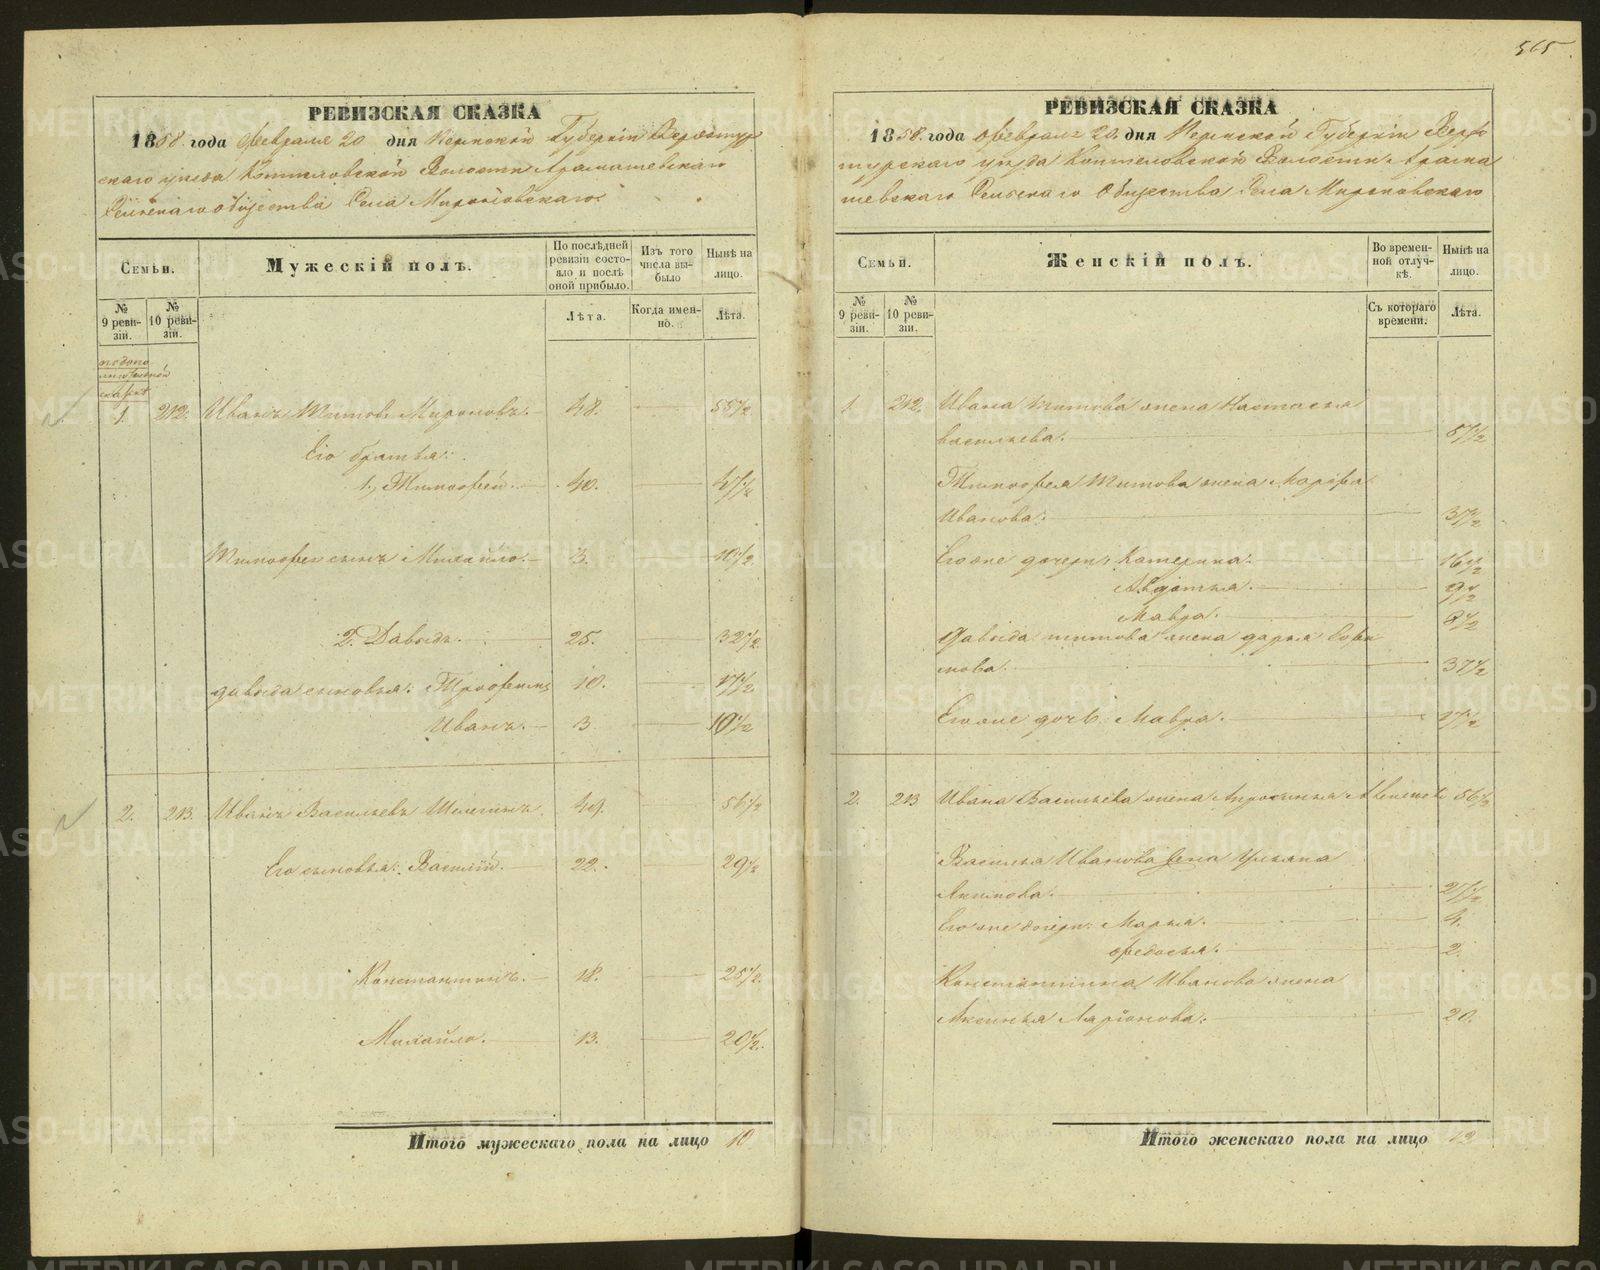 565
РЕВИЗСКАЯ СКАЗКА
1858 года Февраля 20 дня Пермской Губернiи Верхотур
скаго уезда Коптеловской Волости Арамашевскаго
Сельскаго общества Села Мироновскаго
Семьи.
Мужескiй полъ.
По послѣдней ревизiи состояло и послѣ оной прибыло.
Изъ того числа выбыло
Нынѣ на лицо.
№ 9 ревизiи.
№ 10 ревизiи.
Лѣта.
Когда именно.
Лѣта.
1. 212. Иванъ Титовъ Мироновъ. 48. 55½
Его братья:
1, Тимофей. 40. 47½
Тимофея сынъ Михайло. 3. 10½
2. Давыдъ. 25. 32½
Давыда сыновья: Трофимъ 10. 17½
Иванъ. 3 10½
2. 213. Иванъ Васильевъ 49. 56½
Его сыновья: Василiй. 22. 29½
Константинъ. 18. 25½
Михайло. 13. 20½
Итого мужескаго пола на лицо 10
РЕВИЗСКАЯ СКАЗКА
1858 года Февраля 20 дня Пермской Губернiи Верхо
турскаго уезда Коптеловской Волости Арама
шевскаго Сельскаго Общества Села Мироновскаго
Семьи.
Женскiй полъ.
Во временной отлучкѣ.
Нынѣ на лицо.
№ 9 ревизiи.
№ 10 ревизiи.
Съ котораго времени.
Лѣта.
1. 212. Ивана Титова жена Настасья
Васильева. 57½
Тимофея Титова жена Марфа
Иванова. 37½
Егоже дочери, Катерина. 16½
Авдотья. 9½
Мавра.
Давыда Титова жена Дарья
37½
Егоже дочь Мавра.
2. 213 Ивана Васильева жена 56½
Василья Иванова жена Ульяна
Акимова. 27½
Егоже дочери: Марья. 4.
Федосья. 2.
Константина Иванова жена
Аксинья Ларiонова. 20.
Итого женскаго пола на лицо 12
METRIKI.GASO-URAL.RU